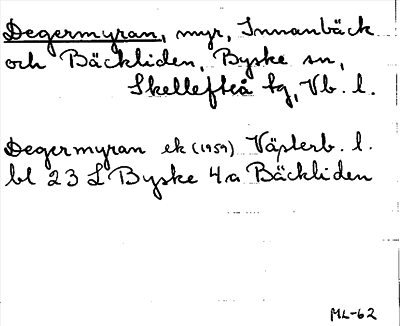 Degermyran, myr, Innanbäck
och Bäckliden, Byske sn,
Skellefteå tg, Vb. l.
Degermyran ek (1959) Västerb. l.
bl 23 L Byske 4a Bäckliden
ML-62